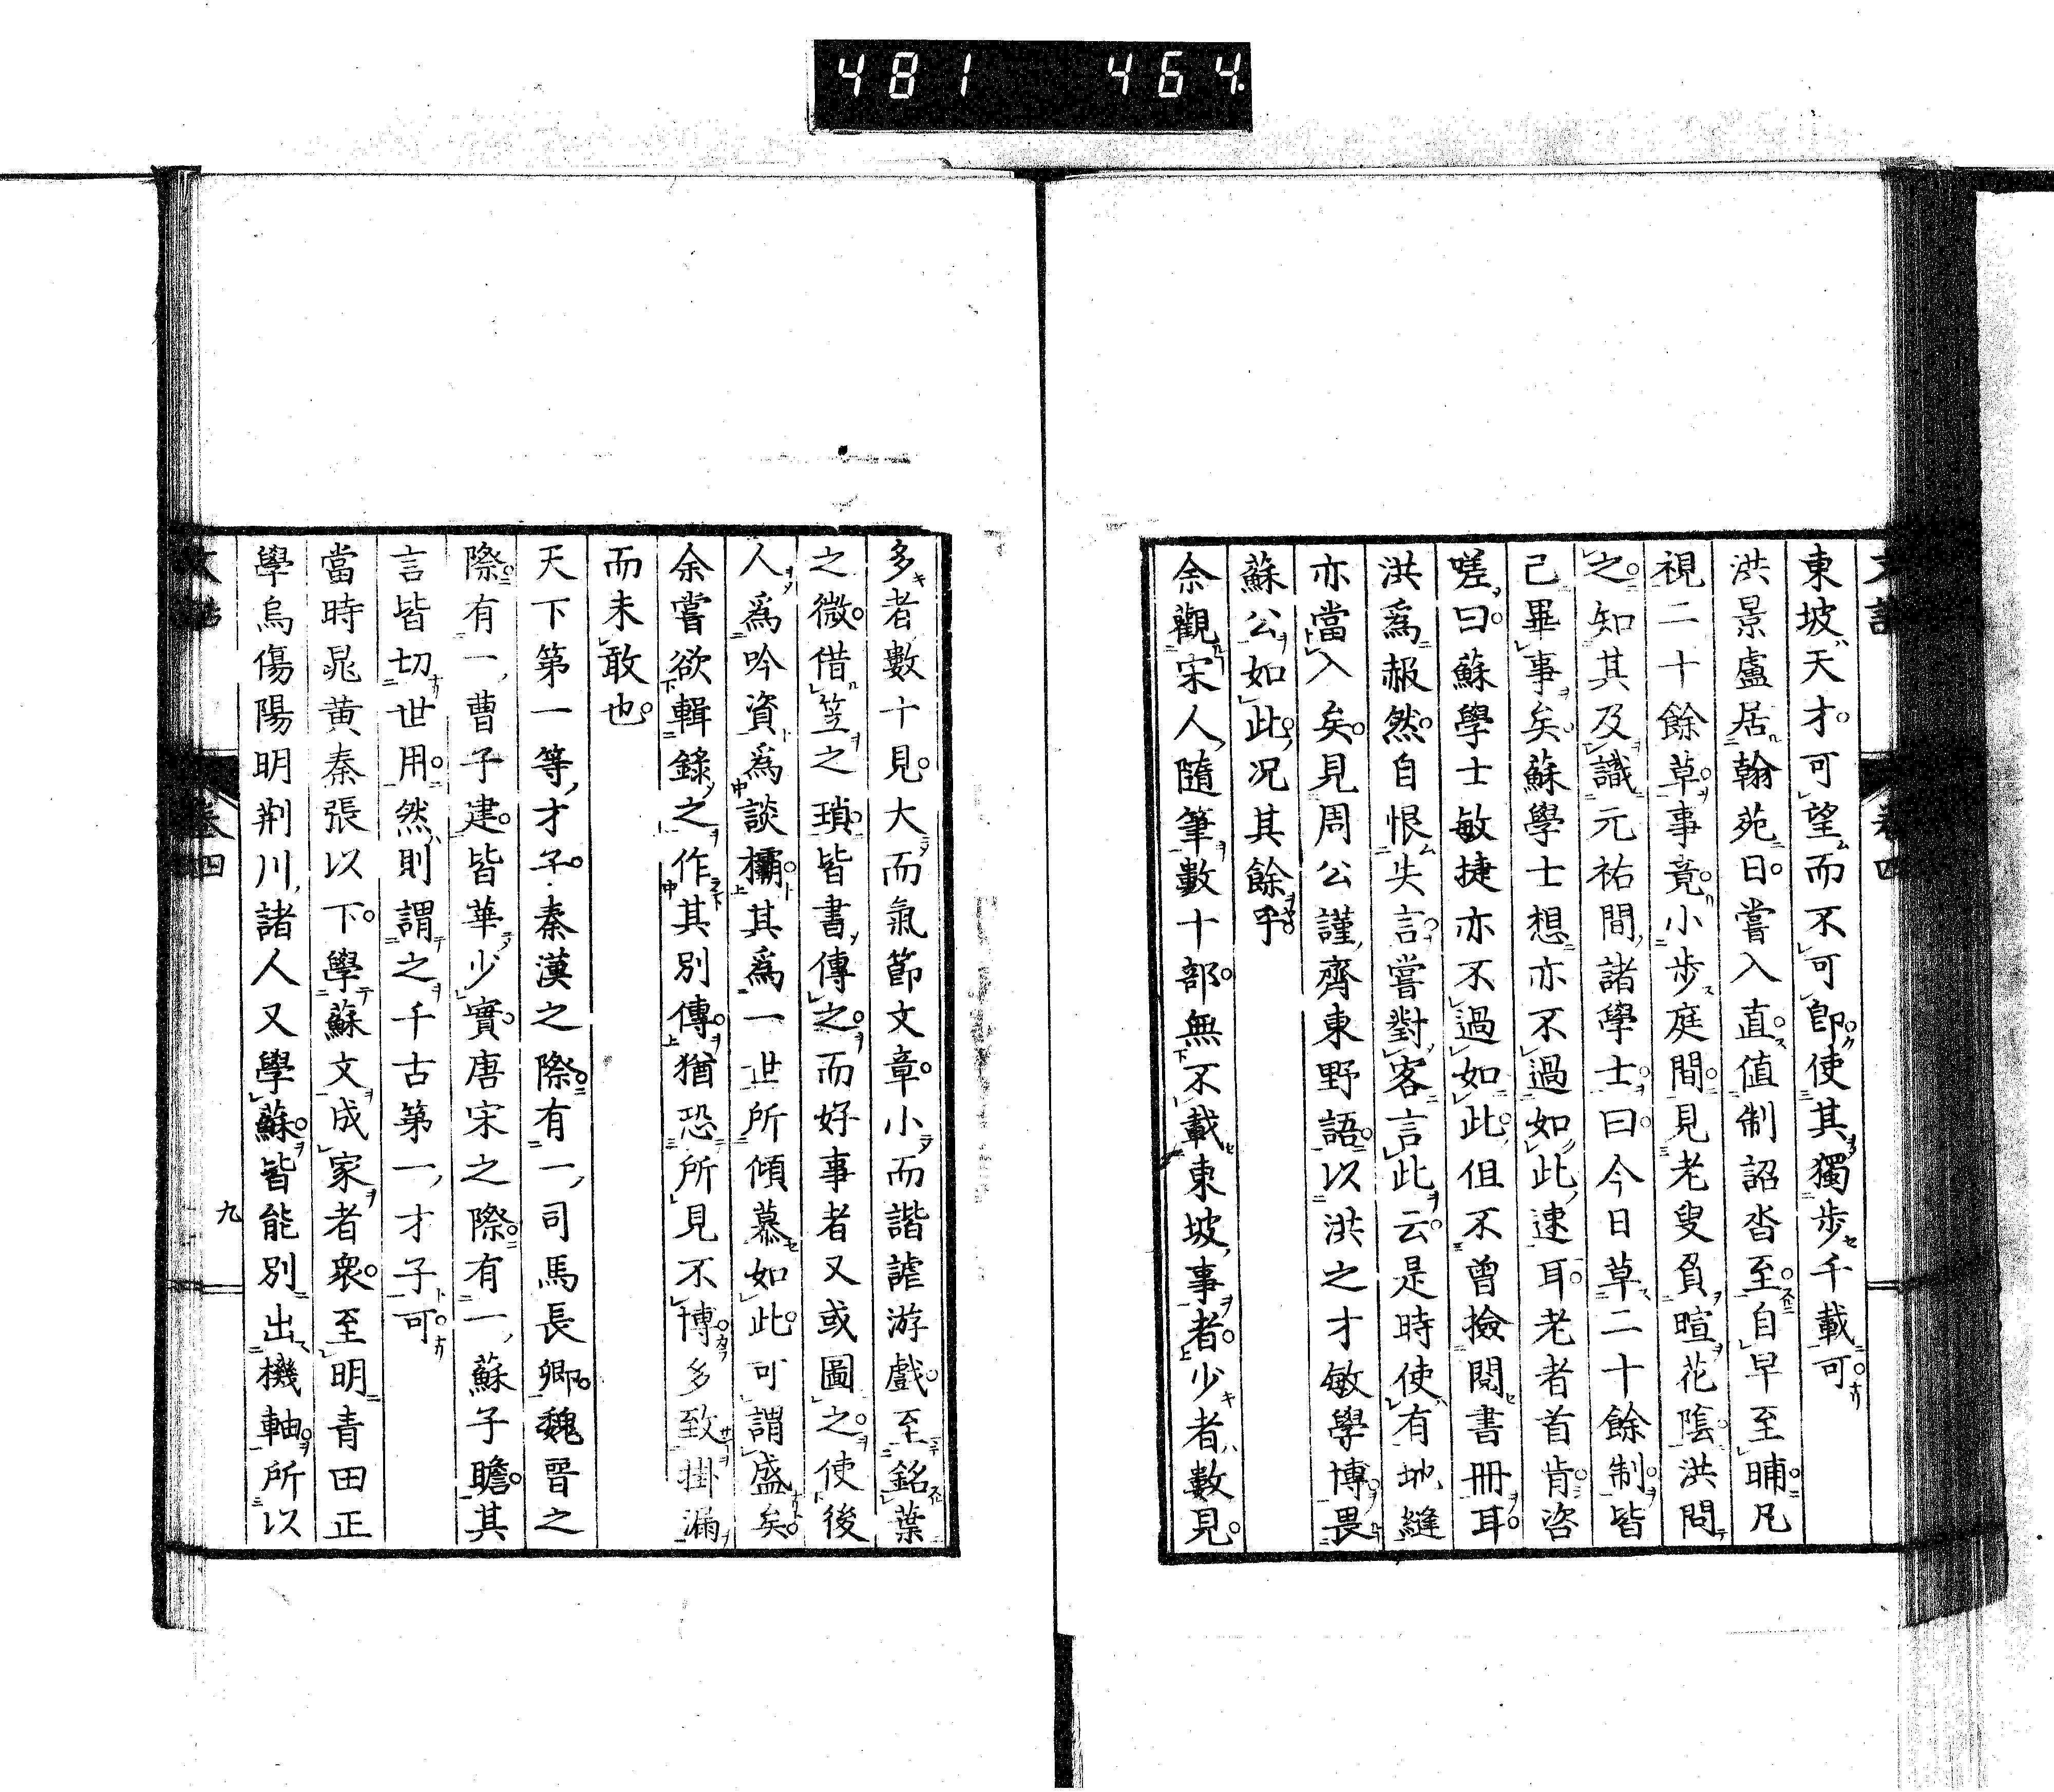 481 464.
東坡天才可望而不可即使其獨步千載可
洪景盧居翰苑日嘗入直值制詔沓至自早至晡凡
視二十餘草事竟小步庭間見老叟負暄花陰洪問
之知其及識元祐間諸學士曰今日草二十餘制皆
已畢事矣蘇學士想亦不過如此速耳老者首肯咨
嗟曰蘇學士敏捷亦不過如此但不曾撿閱書冊耳
洪爲赧然自恨失言嘗對客言此云是時使有地縫
亦當入矣見周公謹齊東野語以洪之才敏學博畏
蘇公如此况其餘乎
余觀宋人隨筆數十部無不載東坡事者少者數見
多者數十見大而氣節文章小而諧謔游戲至銘葉
之微借笠之瑣皆書傳之而好事者又或圖之使後
人爲吟資爲談欛其爲一世所傾慕如此可謂盛矣
余嘗欲輯錄之作其別傳猶恐所見不博多致掛漏
而未敢也
天下第一等才子秦漢之際有一司馬長卿魏晋之
際有一曹子建皆華少實唐宋之際有一蘇子瞻其
言皆切世用然則謂之千古第一才子可
當時晁黄秦張以下學蘇文成家者衆至明青田正
學烏傷陽明荆川諸人又學蘇皆能別出機軸所以
卷四
九